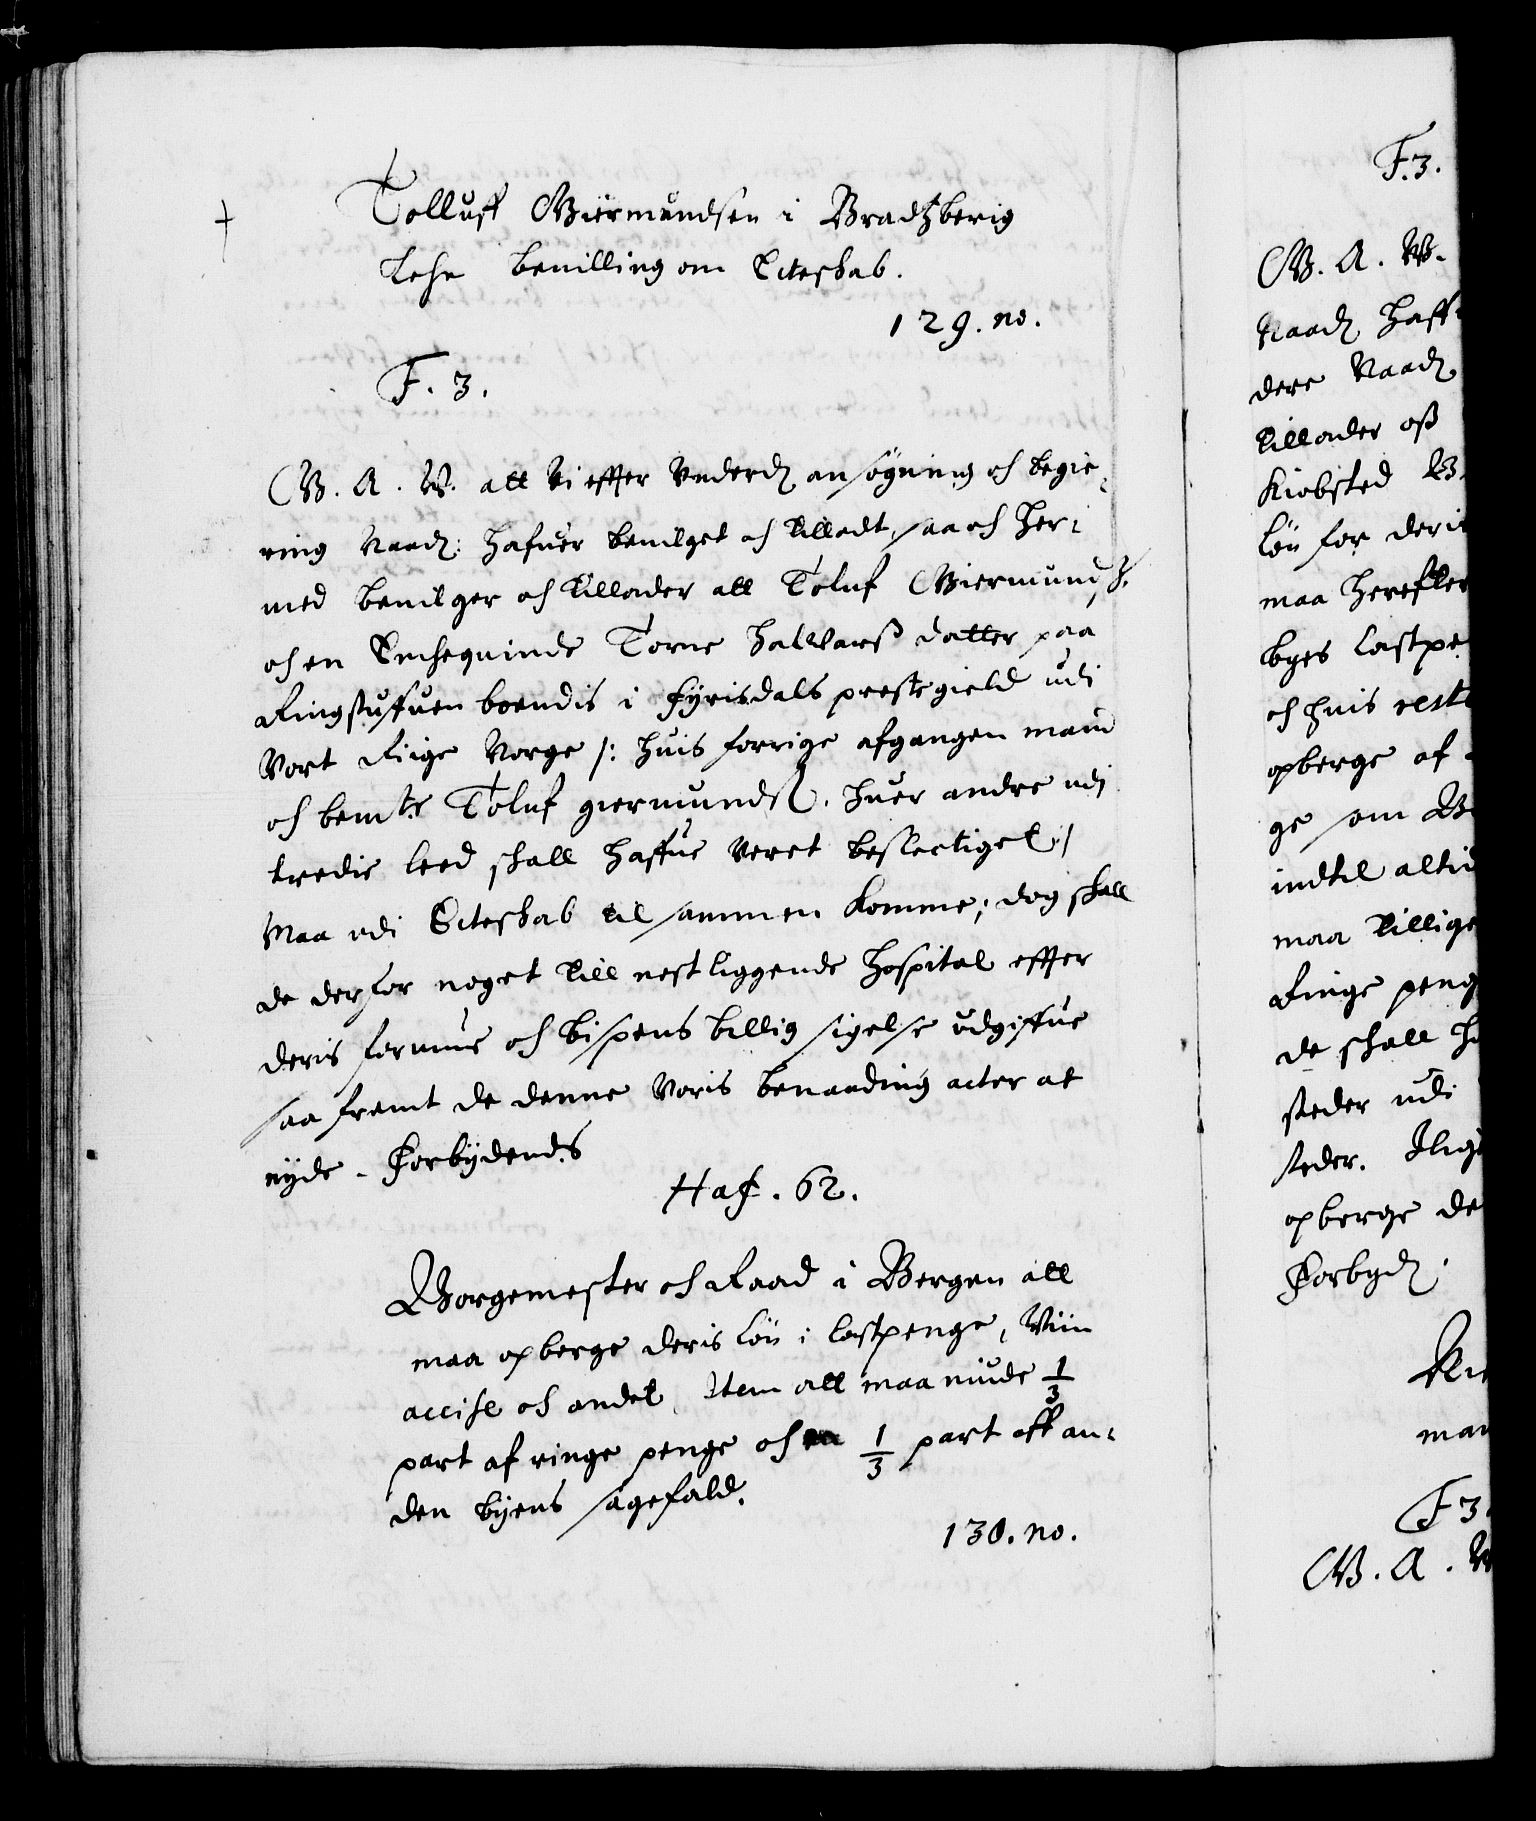 Tolluff Giermundsen i Bradtzberig
Lehn bevilling om Ecteskab.
129. no.
F. 3.
G. A. W. att Vi effter Underd ansögning och begie-
ring Naadl: hafuer bevilget och tilladt, saa och her-
med bevilger och tillader att Toluf Giermundsz.
och en Enchequinde Torne Haluorß datter paa
Ringstufuen boendis i Fyrisdals prestegield udi
Vort Riige Norge /: huis forrige afgangen mand
och bemte Toluf giermunds. huer andre udi
tredie leed skall haffue veret beslectiget :/
Maa udi Ecteskab til sammen Komme; dog skall
de derfor noget till nestliggende Hospital effter
deris formue och bispens billig sigelse udgifue
saa fremt de denne Voris benaading acter at
nyde - Forbydends
Haf. 62.
Borgemester och Raad i Bergen att
maa opberge deris løn i lastpenge, Viin
accise och andet, Item att maa niude 1/3
part af ringe penge och 1/3 part aff an-
den byens sagefald.
130. no.
F. 3.
G. A. W.
Naadl haff
dere Naadl
tillader oß
Kiobsted B.
løn for deris
maa herefter
byes lastpe
och huis rest
opberge af
ge som B
indtil altid
maa tillige
Ringe peng
de skall h
steder udi
steder. Ilige
opberge de
Forbydl.
man
F 3.
G. A. W